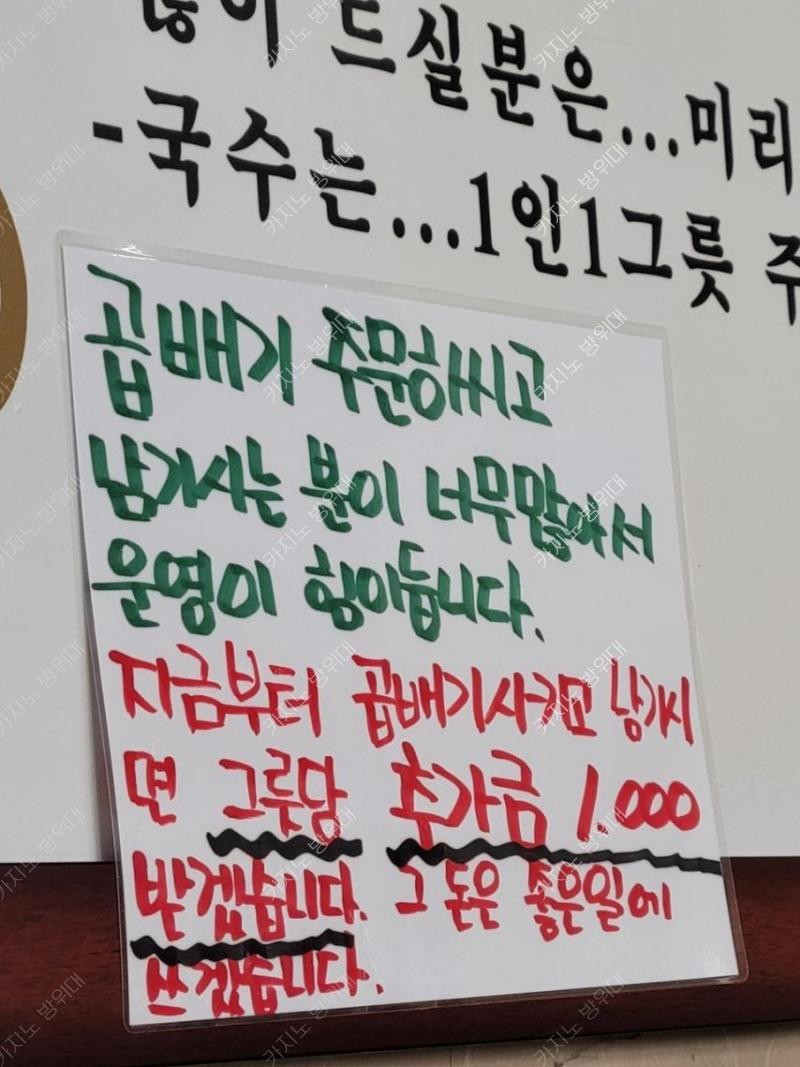 많이 드실분은...미리
-국수는...1인1그릇 주
곱배기 주문하시고
남기시는 분이 너무많아서
운영이 힘이듭니다.
지금부터 곱배기시키고 남기시
면 그릇당 추가금 1.000
받겠습니다. 그 돈은 좋은일에
쓰겠습니다.
카지노 방위대